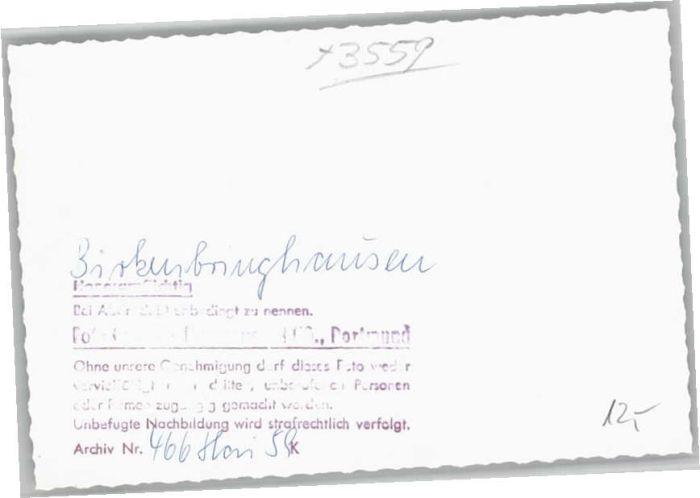 +3559
Birkenbringhausen
Honorarpflichtig
Bei Abdruck unbedingt zu nennen.
Foto & Co., Dortmund
Ohne unsere Genehmigung darf dieses Foto weder
vervielfältigt unberufenen Personen
oder Firmen zugängig gemacht werden.
Unbefugte Nachbildung wird strafrechtlich verfolgt.
Archiv Nr. 466 K
12,-